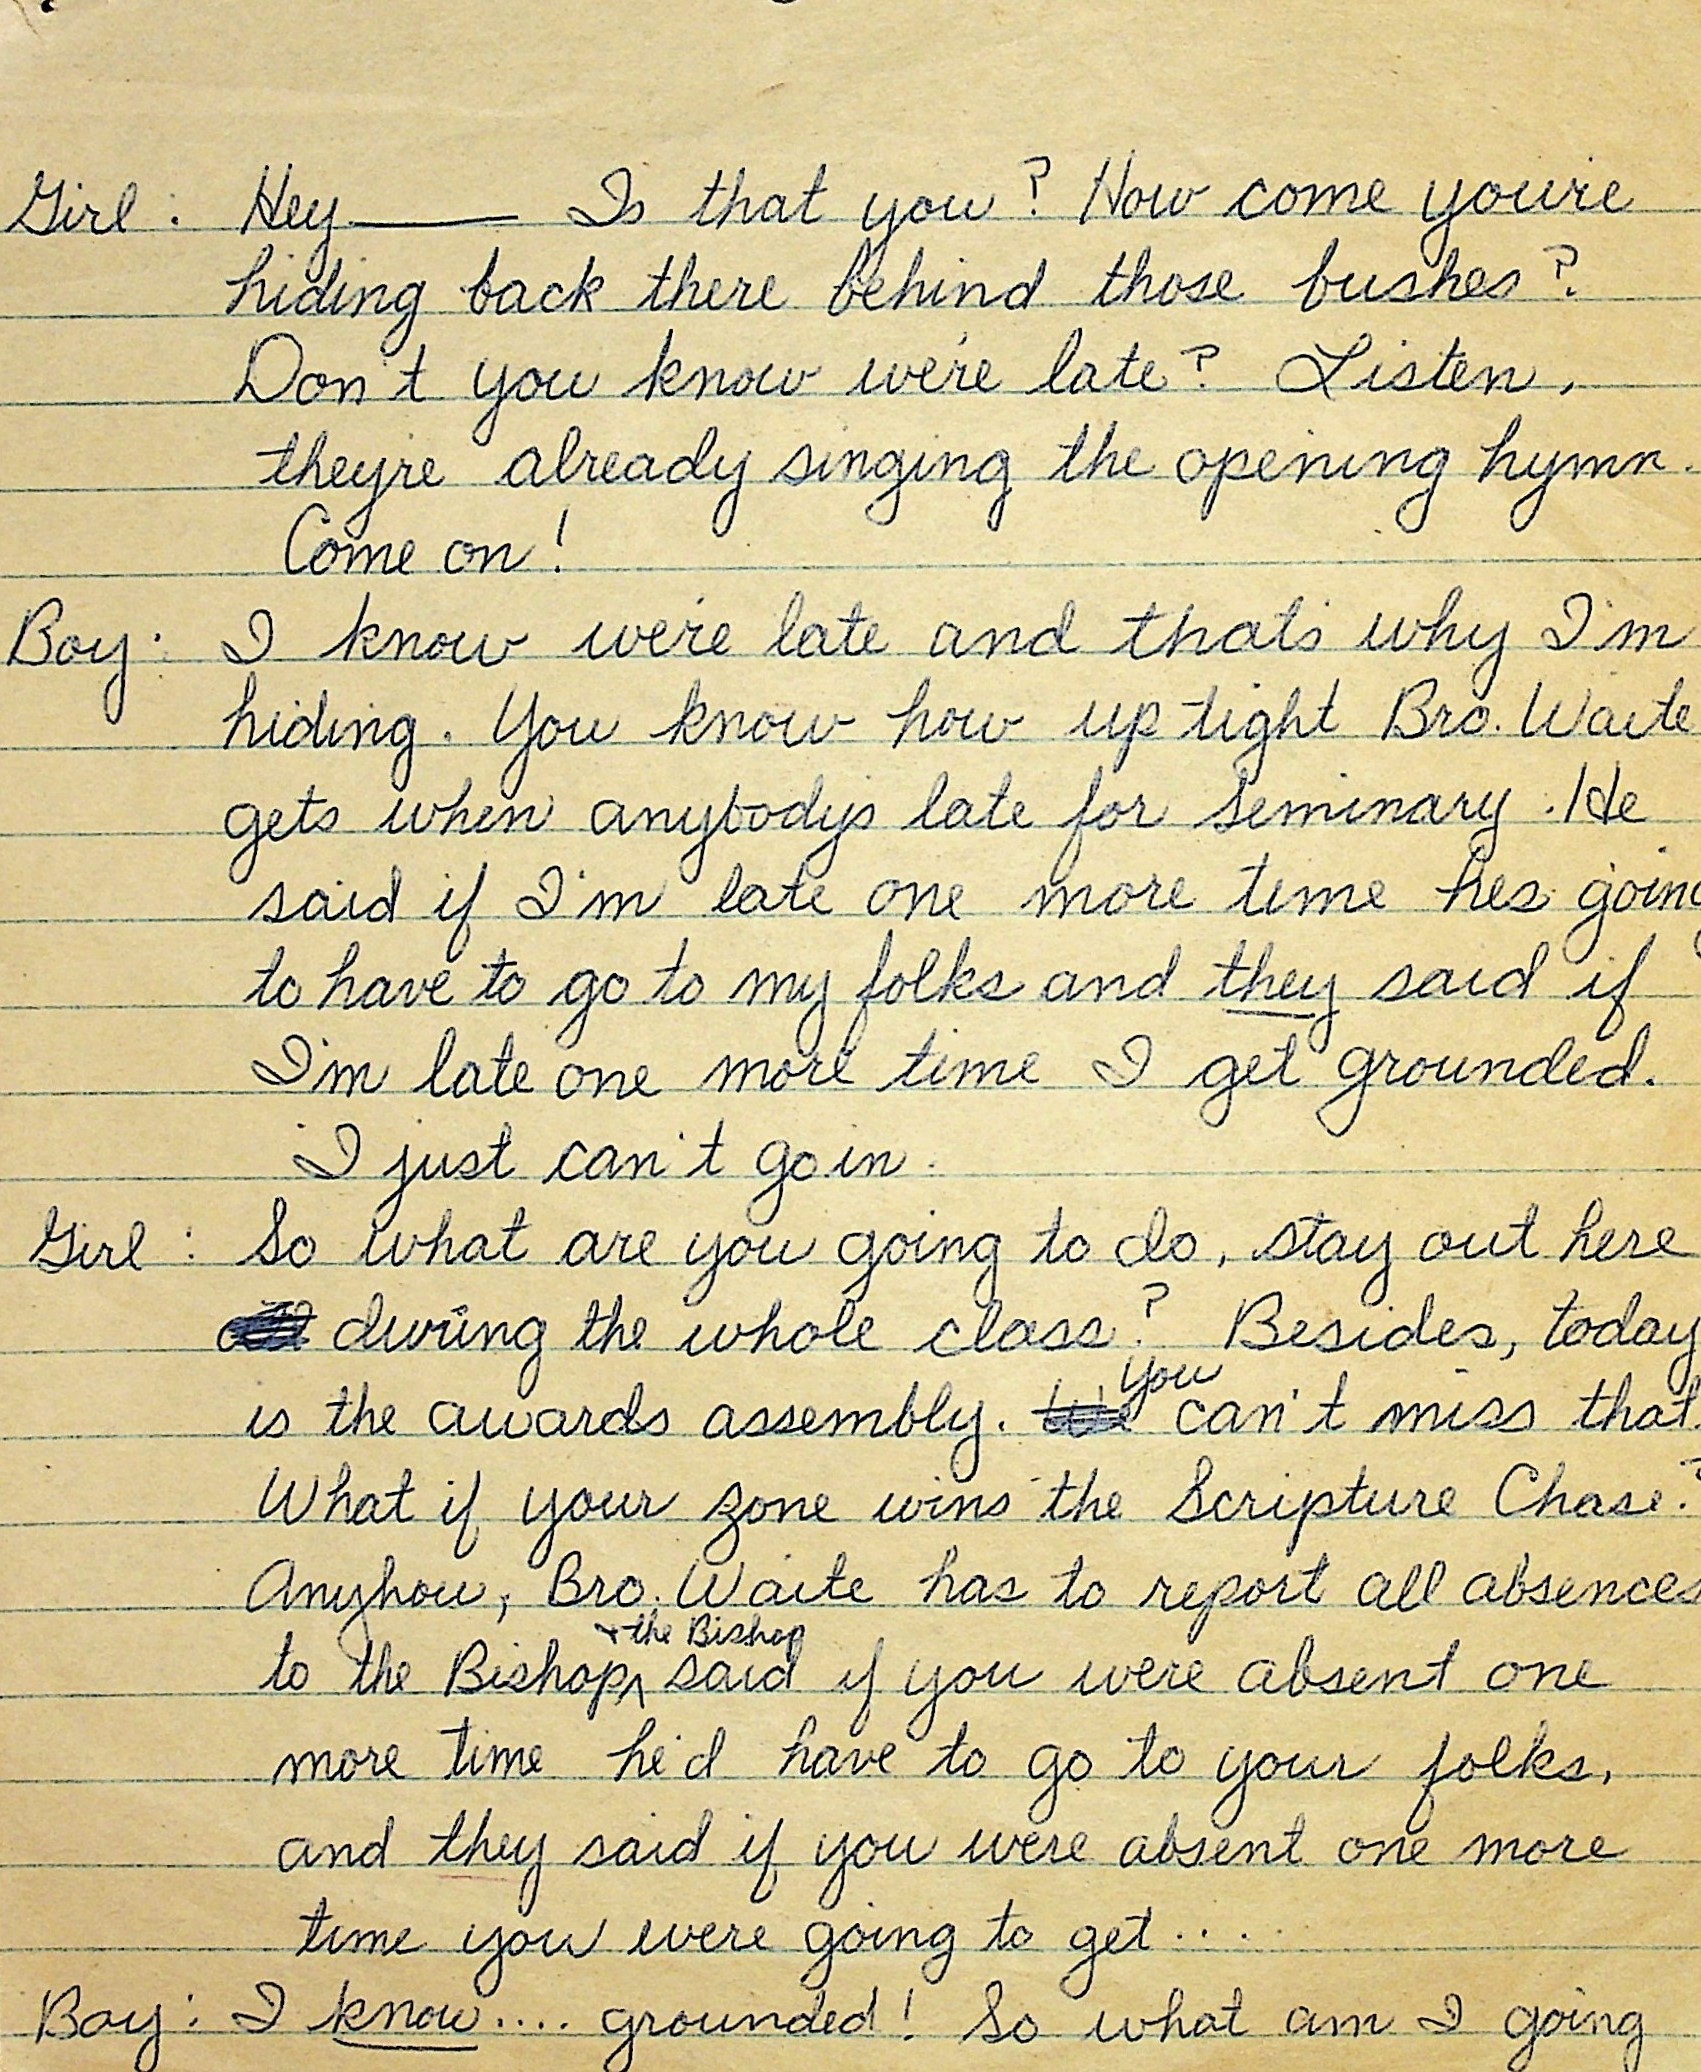 Girl: Hey ______ Is that you? How come you're
hiding back there behind those bushes?
Don't you know we're late? Listen,
they're already singing the opening hymn.
Come on!
Boy: I know we're late and that's why I'm
hiding. You know how up tight Bro. Waite
gets when anybody's late for seminary. He
said if I'm late one more time hes going
to have to go to my folks and they said if
I'm late one more time I get grounded.
I just can't go in.
Girl: So what are you going to do, stay out here
during the whole class? Besides, today
is the awards assembly. you can't miss that.
What if your zone wins the Scripture Chase?
Anyhow, Bro. Waite has to report all absences
to the Bishop + the Bishop said if you were absent one
more time he'd have to go to your folks,
and they said if you were absent one more
time you were going to get ....
Boy: I know.... grounded! So what am I going